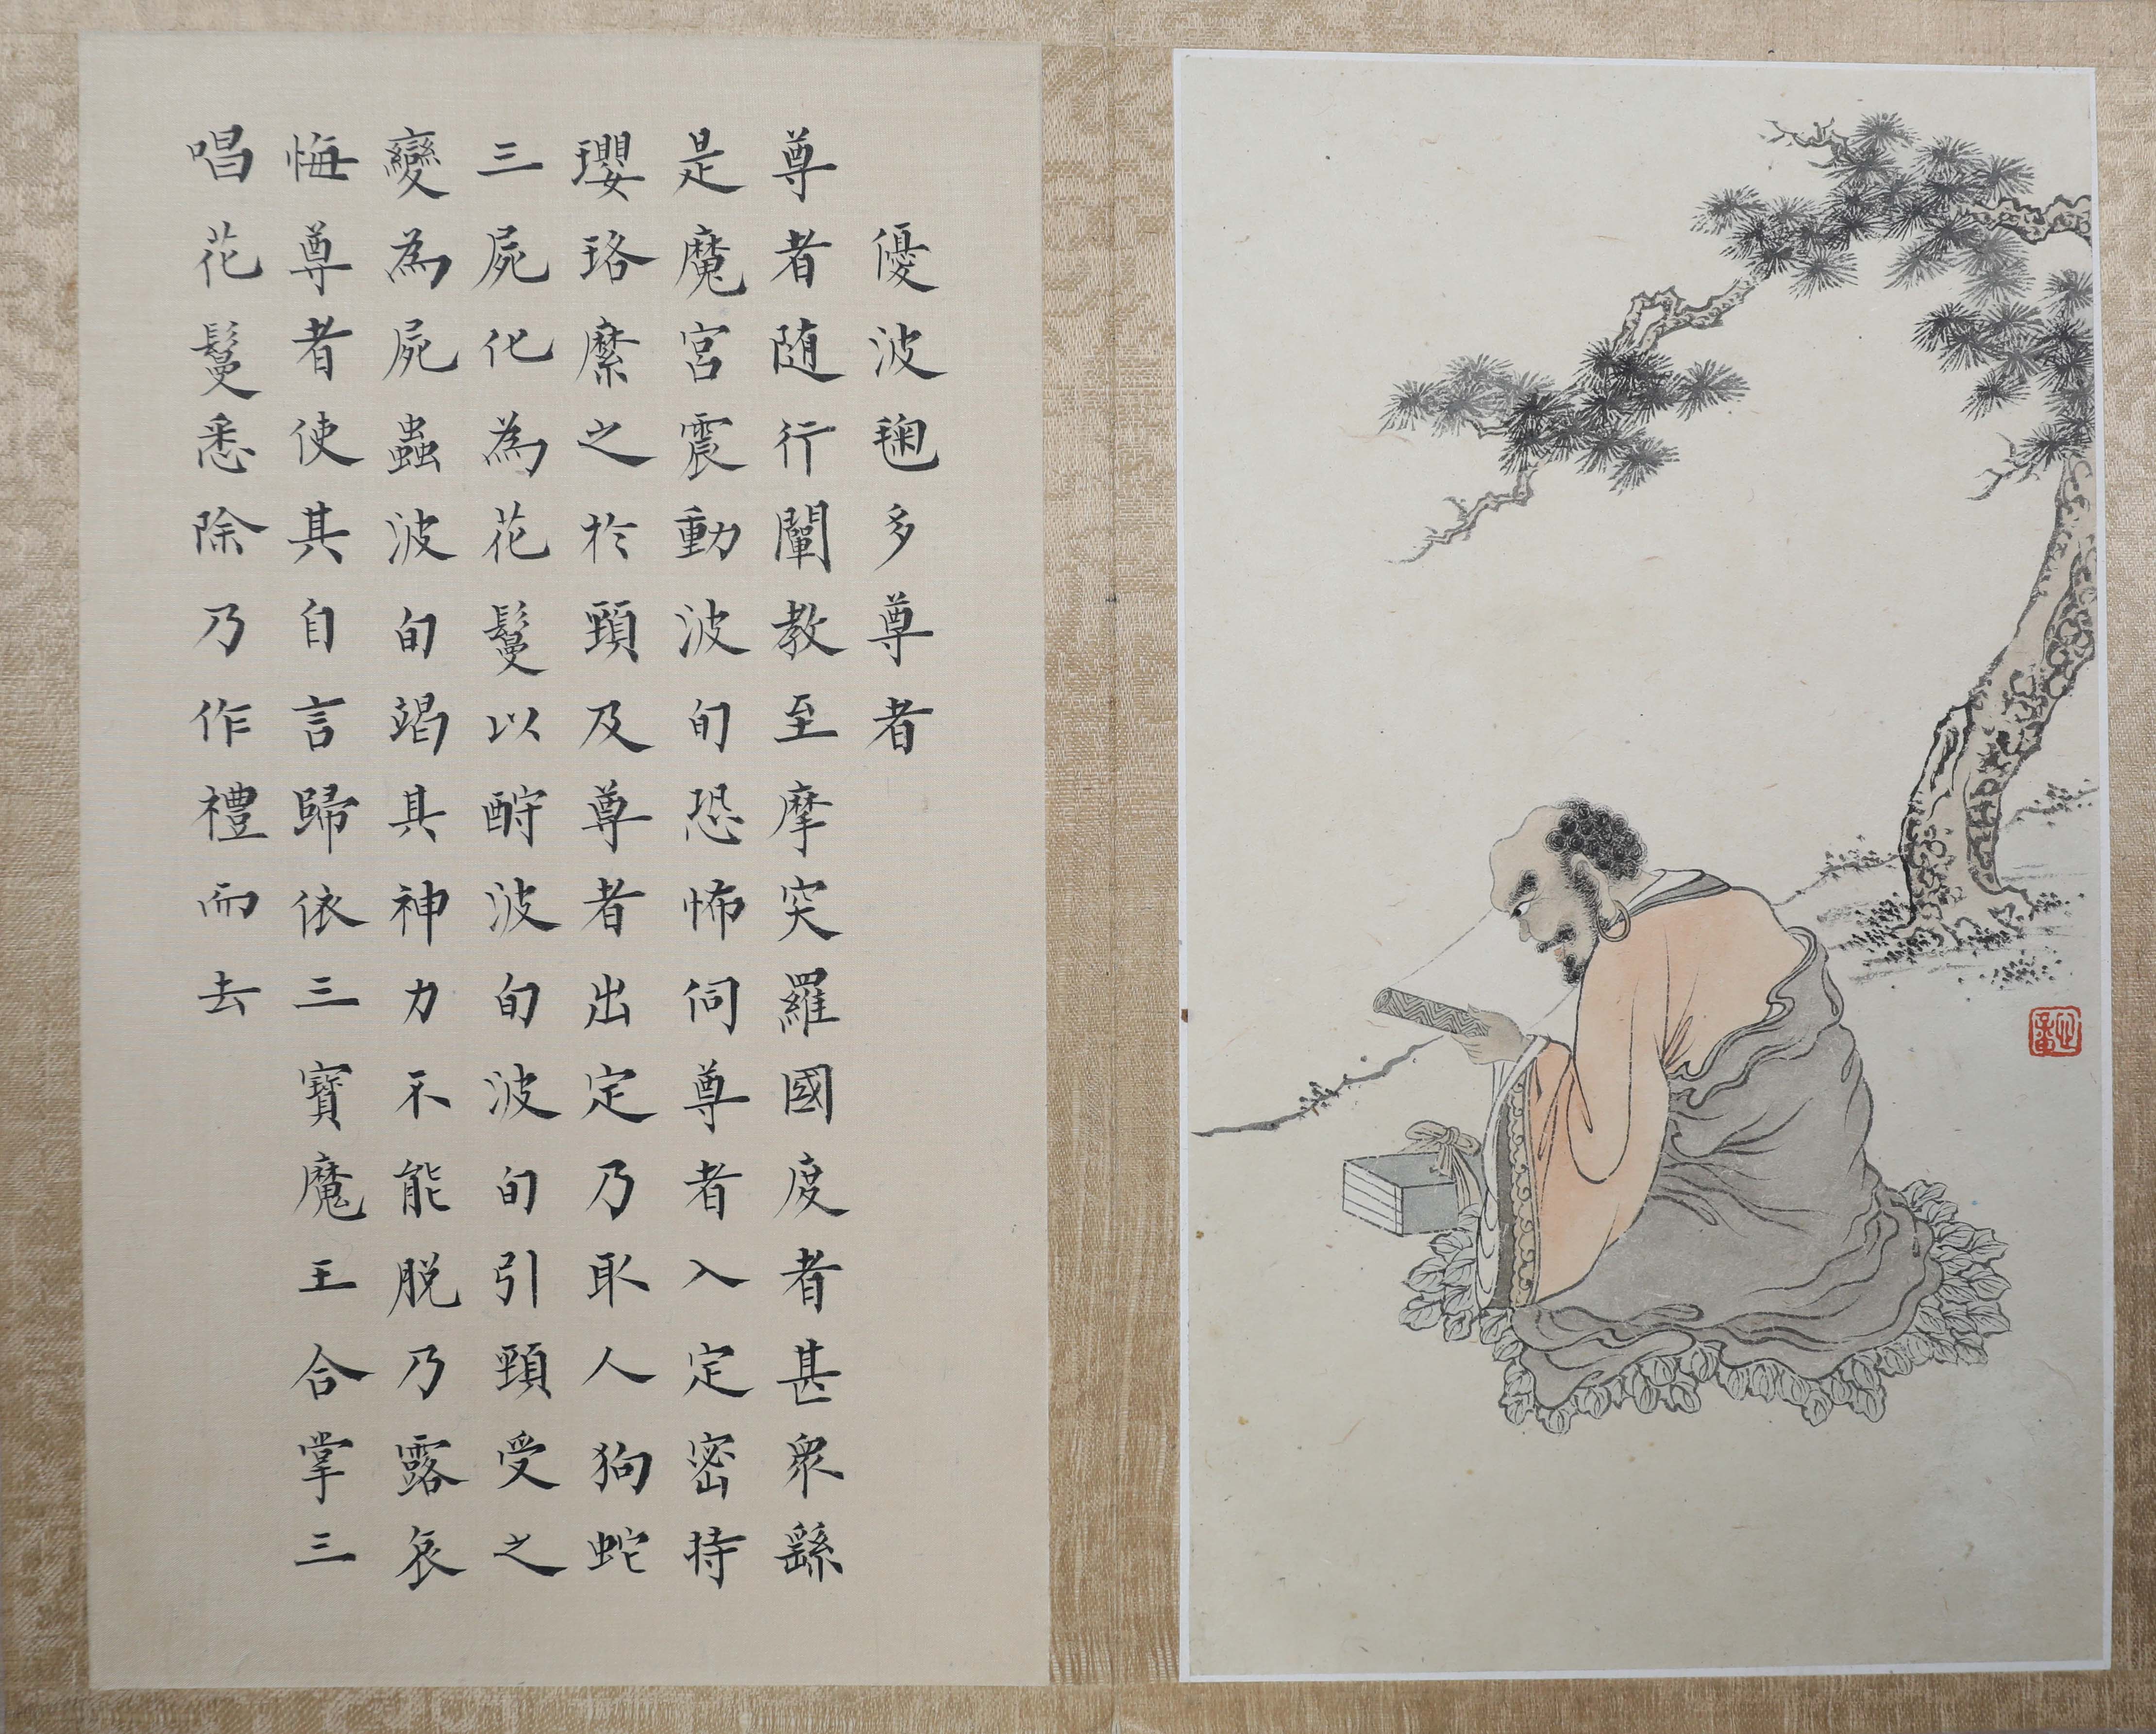 優波毱多尊者
尊者随行闡教至摩突羅國度者甚衆繇
是魔宮震動波旬恐怖伺尊者入定密持
瓔珞縻之於頸及尊者出定乃取人狗蛇
三屍化為花鬘以酧波旬波旬引頸受之
變為屍蟲波旬竭其神力不能脱乃露哀
悔尊者使其自言歸依三寶魔王合掌三
唱花鬘悉除乃作禮而去